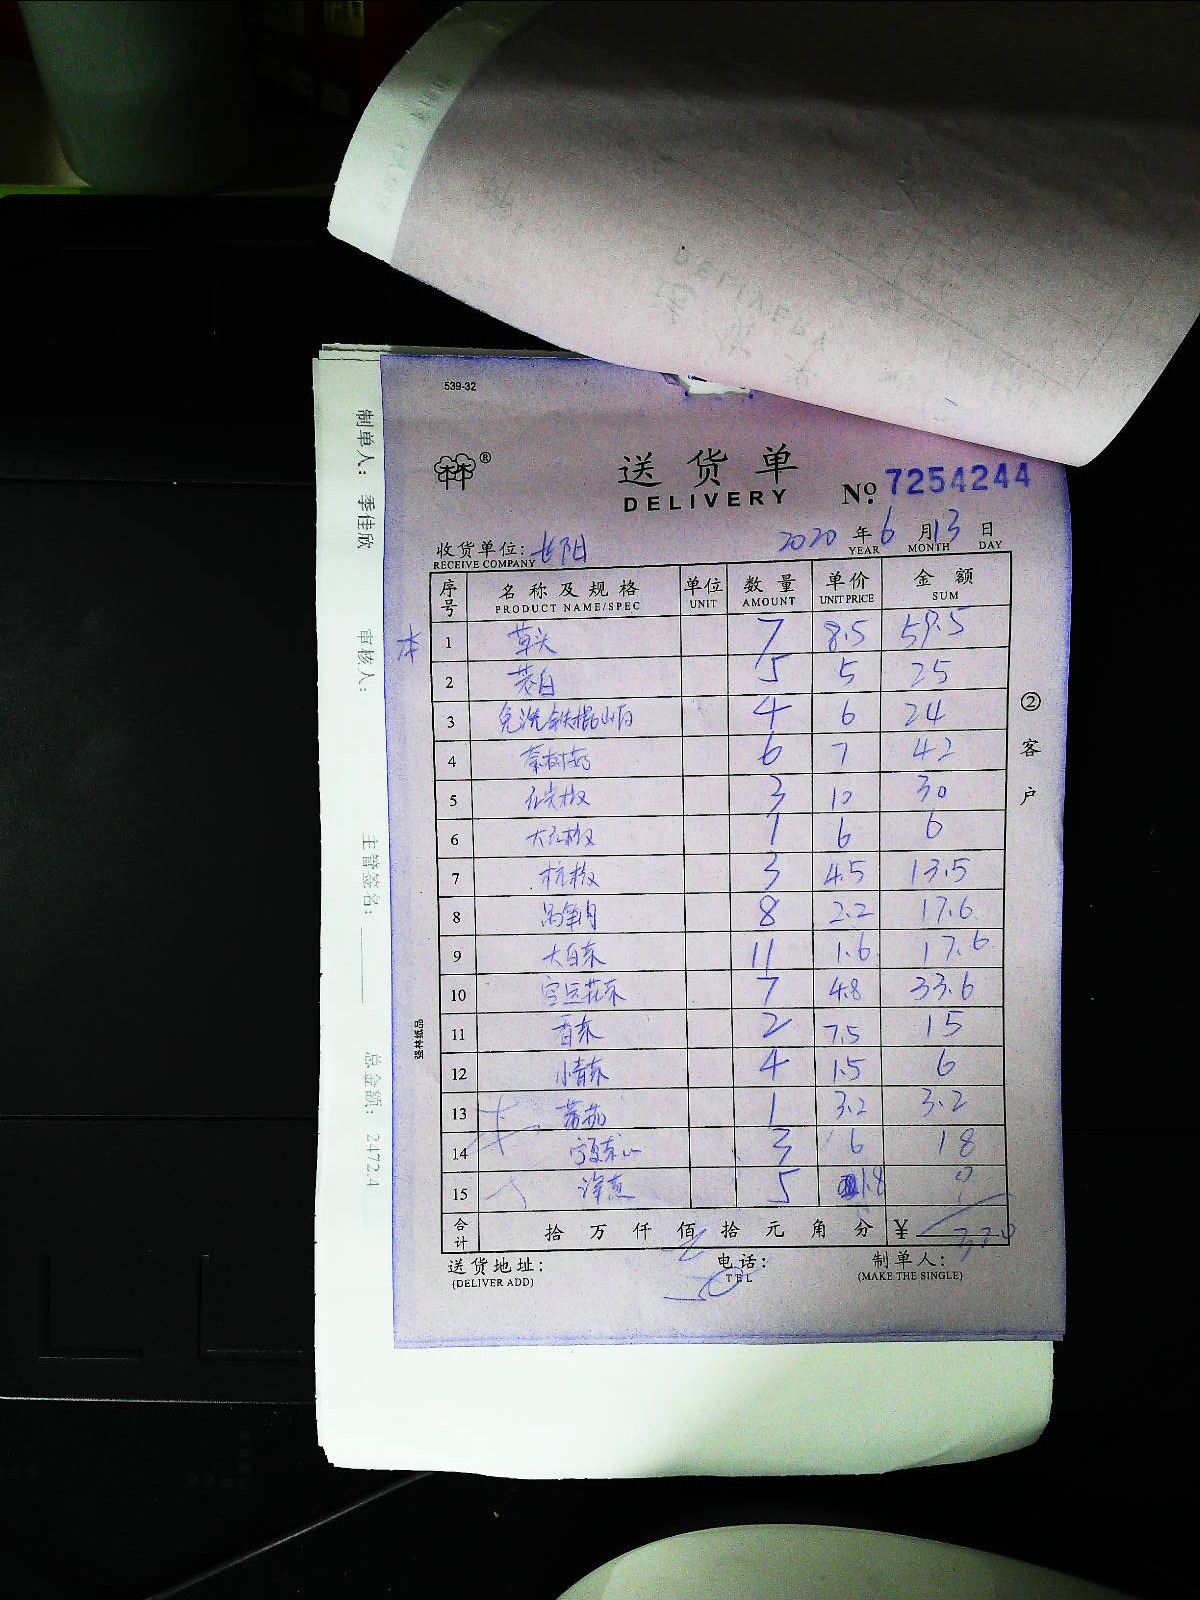 539-32
林林®
送货单
DELIVERY
No. 7254244
收货单位: 长阳 2020年6月13日
RECEIVE COMPANY YEAR MONTH DAY
序号 名称及规格 单位 数量 单价 金额
PRODUCT NAME/SPEC UNIT AMOUNT UNIT PRICE SUM
本
1 草头 7 8.5 59.5
2 茭白 5 5 25
3 免洗铁棍山药 4 6 24
4 茶树菇 6 7 42
5 红尖椒 3 10 30
6 大红椒 1 6 6
7 杭椒 3 4.5 13.5
8 8 2.2 17.6
9 大白菜 11 1.6 17.6
10 空运花菜 7 4.8 33.6
11 香菜 2 7.5 15
12 小青菜 4 1.5 6
13 蕃茄 1 3.2 3.2
14 3 6 18
15 洋葱 5 1.8 9
合计 拾 万 仟 佰 拾 元 角 分 ¥
送货地址: 电话: 制单人:
(DELIVER ADD) TEL (MAKE THE SINGLE)
②客户
强林纸品
制单人: 季佳欣 审核人: 主管签名: 总金额: 2472.4
DELIVERY